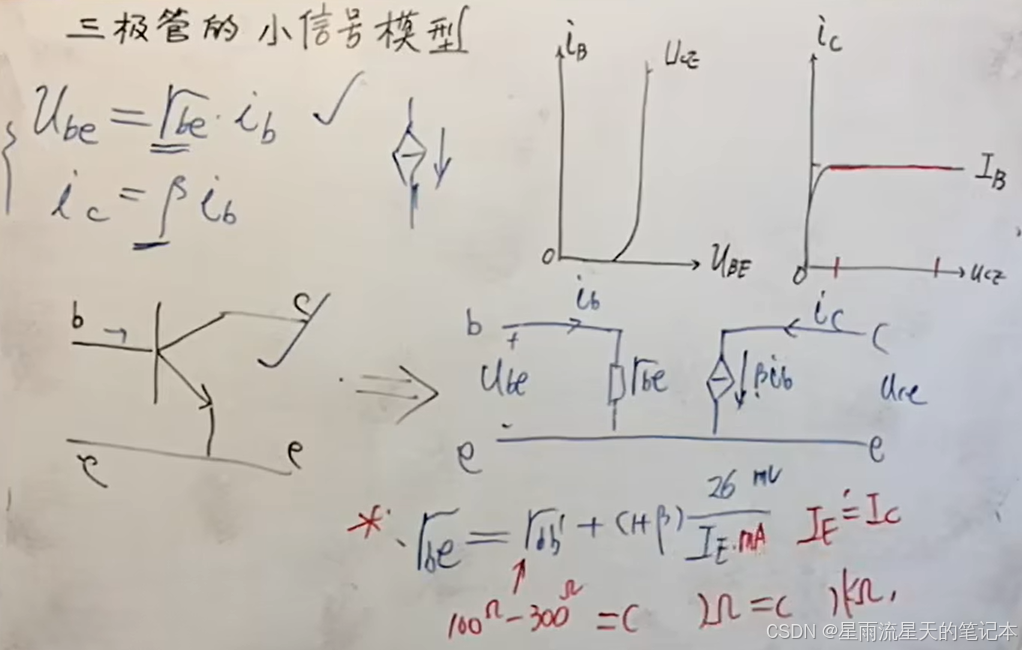 三极管的小信号模型
Ube = rbe · ib ✓
ic = β ib
iB
UCE
0
UBE
iC
IB
0
UCE
b
c
e
e
b
ib
+
Ube
-
e
rbe
βib
iC
C
Uce
e
*. rbe = rbb' + (1+β) 26 mV / IE·mA IE ≐ IC
100Ω-300Ω = C
Ω = C
kΩ.
CSDN @星雨流星天的笔记本